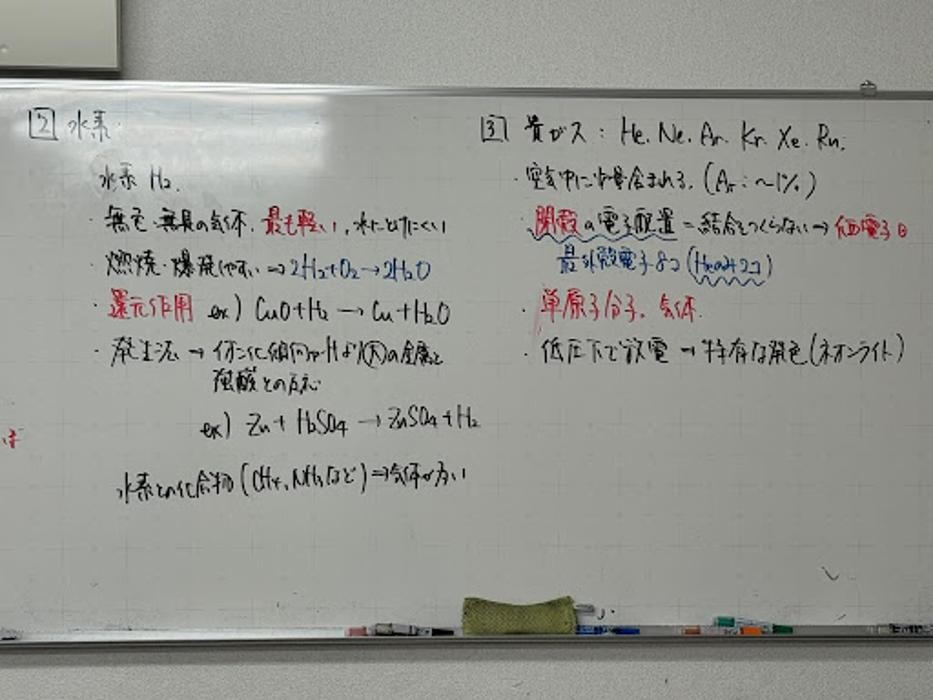 2 水素
水素 H₂.
・無色・無臭の気体, 最も軽い, 水にとけにくい
・燃焼・爆発しやすい ⇒ 2H₂+O₂→2H₂O
・還元作用 ex) CuO+H₂ → Cu+H₂O
・発生法 → イオン化傾向がHより大の金属と
強酸との反応
ex) Zn+H₂SO₄ → ZnSO₄+H₂
水素との化合物(CH₄, NH₃など)⇒気体が多い
3 貴ガス: He. Ne. Ar. Kr. Xe. Rn.
・空気中に少量含まれる. (Ar:～1%)
・閉殻の電子配置 = 結合をつくらない → 価電子0
最外殻電子8コ(Heのみ2コ)
・単原子分子. 気体.
・低圧下で放電 → 特有な発色(ネオンライト)